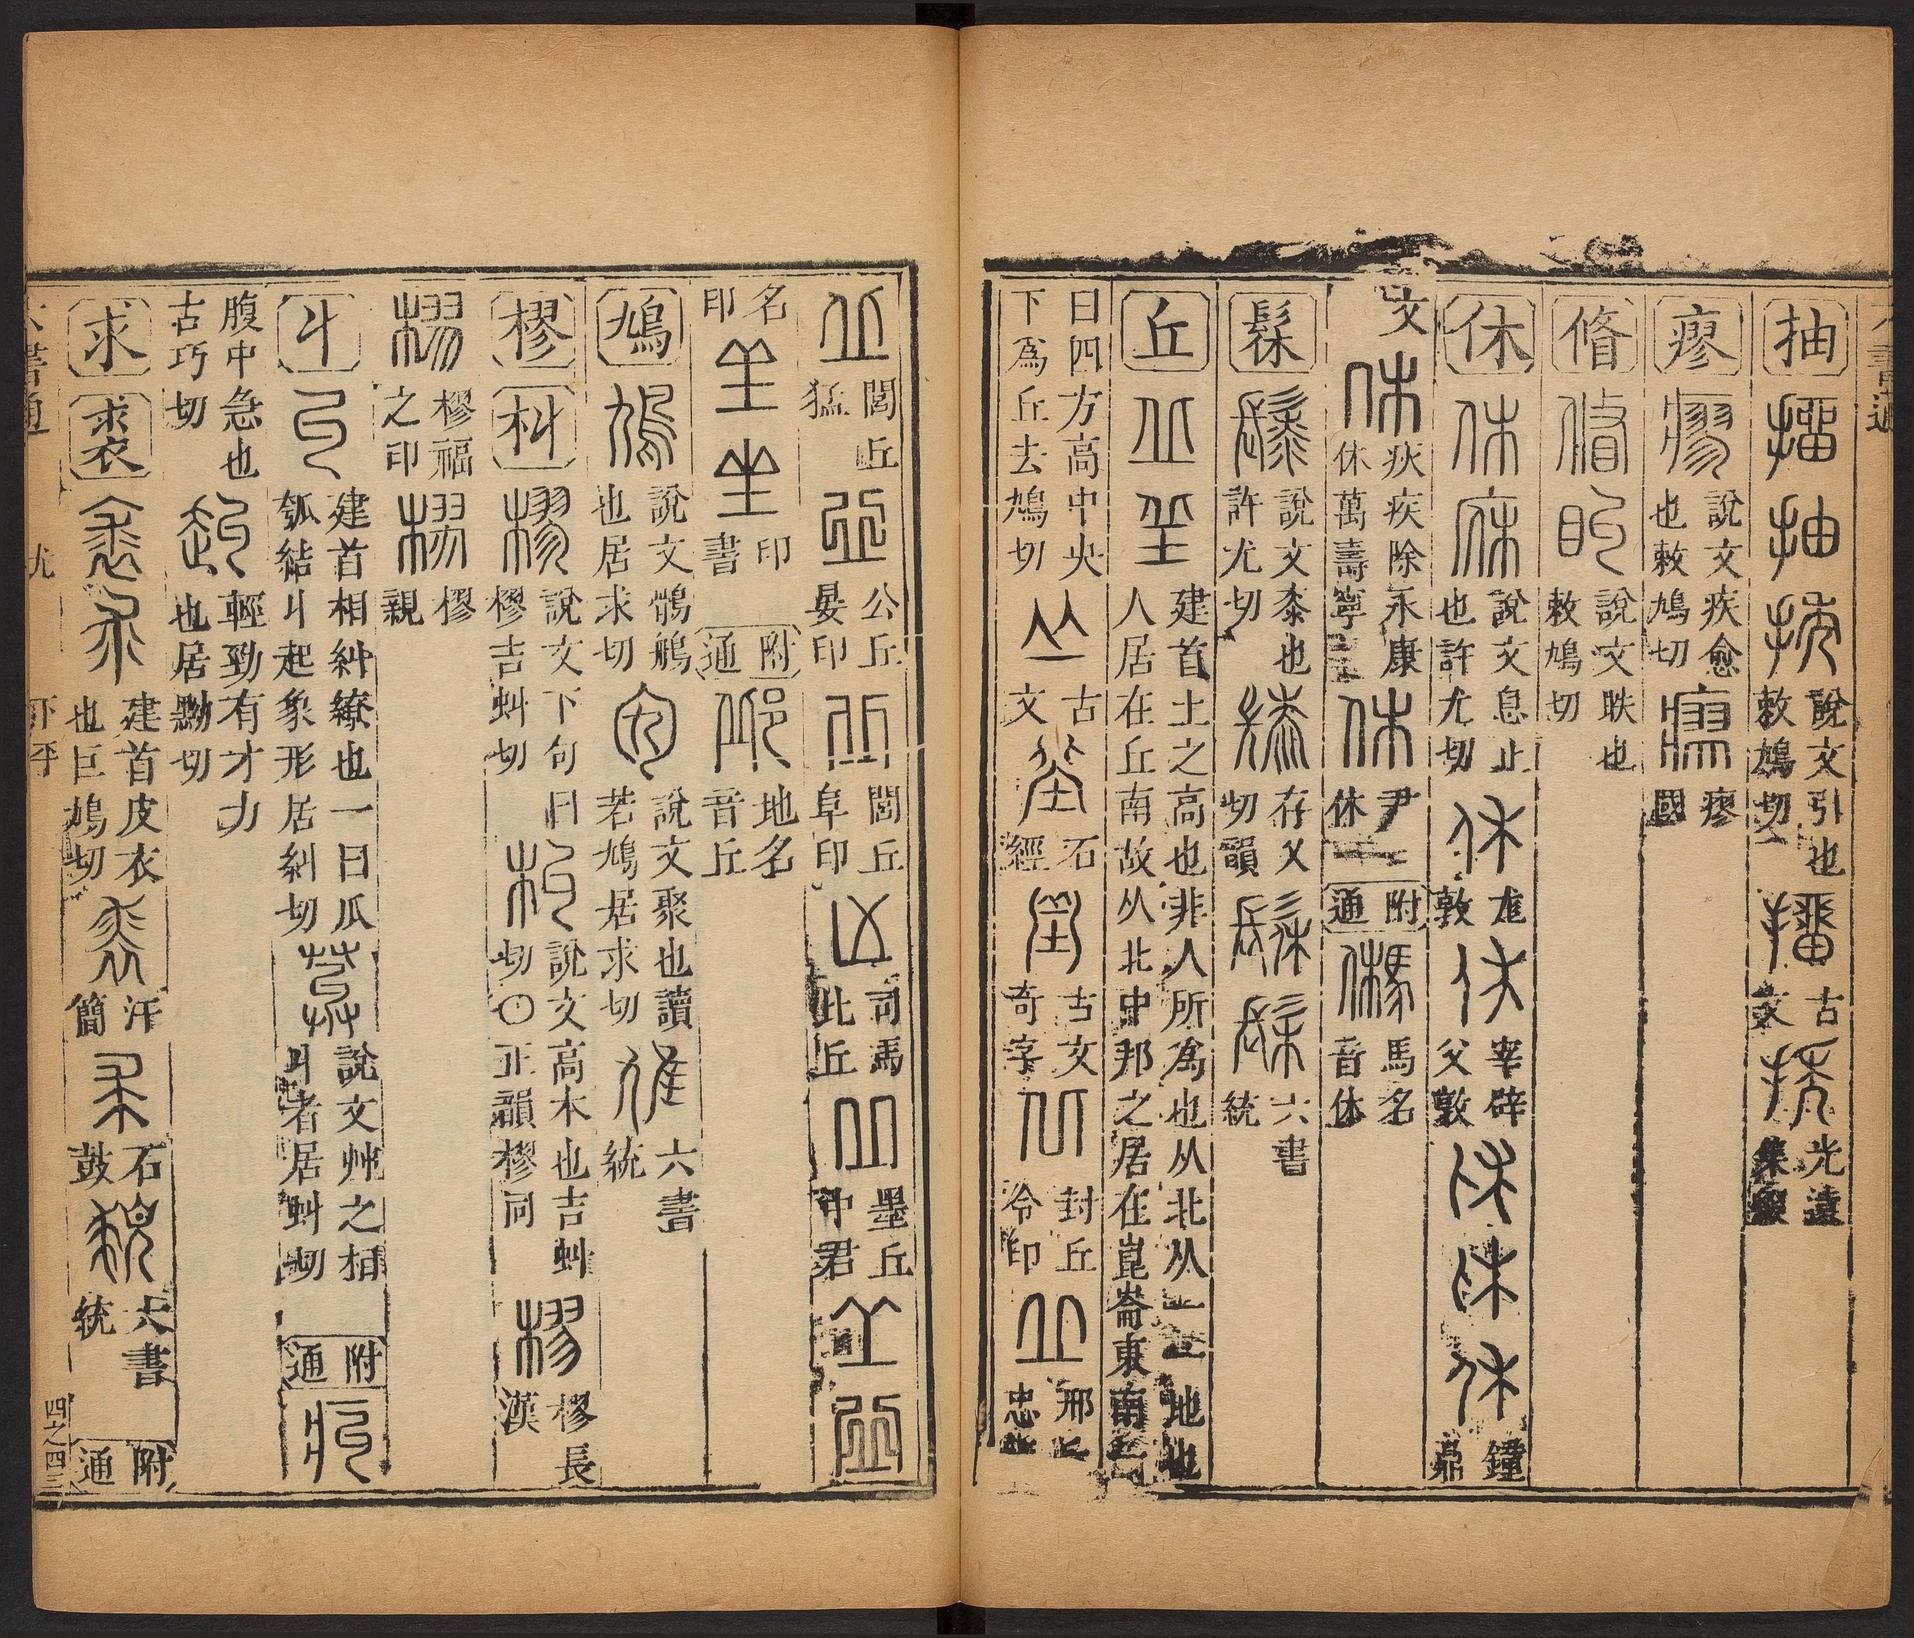 抽 說文引也敕鳩切 古文 光遠集綴
瘳 說文疾愈也敕鳩切 瘳國
脩 說文眣也敕鳩切
休 說文息止也許尤切 敦 宰辟父敦 鐘鼎
文 疢疾除永康休萬壽寧 尹休 附通 馬名音休
髹 說文桼也許尤切 存乂切韻 六書統
丘 建首土之高也非人所爲也从北从一一地也人居在丘南故从北中邦之居在崑崙東南
曰四方高中央下爲丘去鳩切 古文 石經 古文奇字 封丘冷印 邢忠
閭丘猛 公丘晏印 閭丘阜印 司馬此丘 墨丘中君
名印 印書 附通 地名音丘
鳩 說文鶻鵃也居求切 說文聚也讀若鳩居求切 六書統
樛 朻 說文下句曰樛吉虯切 說文高木也吉虯切〇正韻樛同 樛長漢
樛福之印 樛親
丩 建首相糾繚也一曰瓜瓠結丩起象形居糾切 說文艸之相丩者居虯切 附通
腹中急也古巧切 輕勁有才力也居黝切
求 裘 建首皮衣也巨鳩切 汗簡 石鼓 六書統 附通
六書通 尤 下平 四之四三